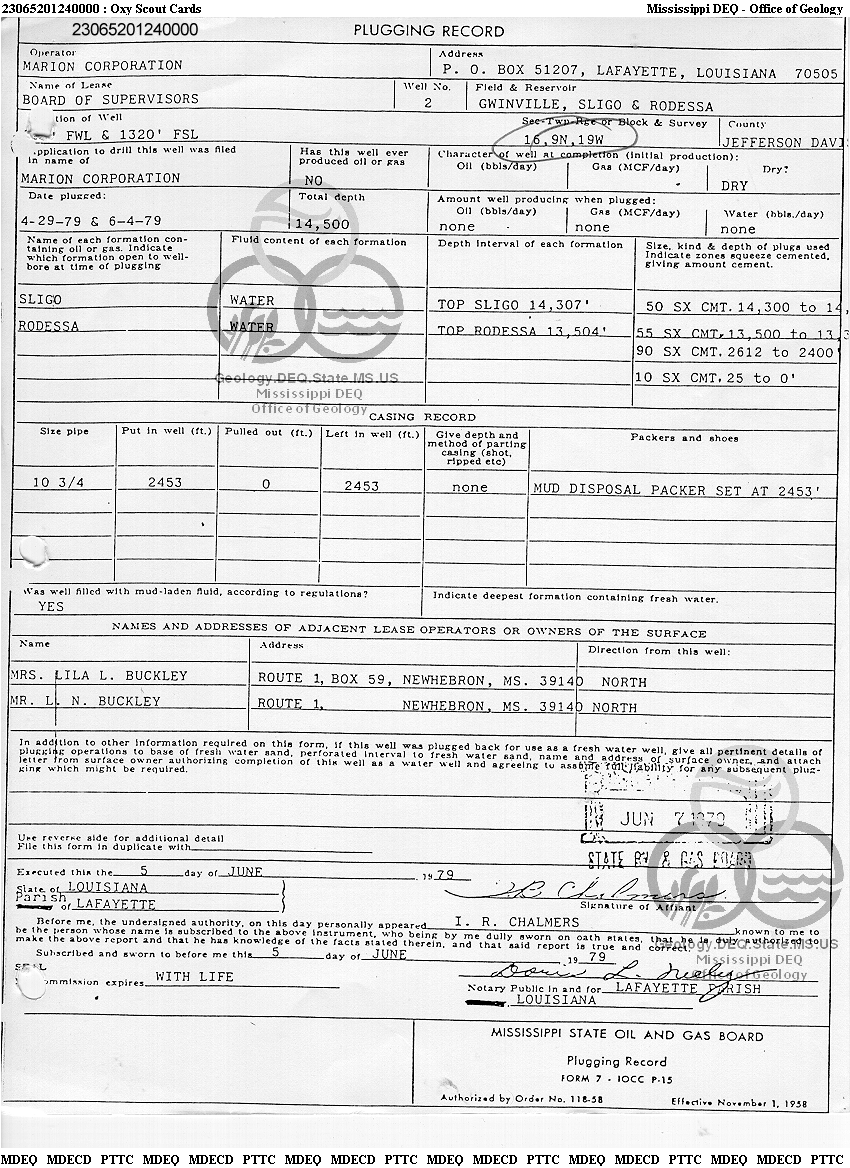 23065201240000 : Oxy Scout Cards Mississippi DEQ - Office of Geology
23065201240000
PLUGGING RECORD
Operator
MARION CORPORATION
Address
P. O. BOX 51207, LAFAYETTE, LOUISIANA 70505
Name of Lease
BOARD OF SUPERVISORS
Well No.
2
Field & Reservoir
GWINVILLE, SLIGO & RODESSA
tion of Well
FWL & 1320' FSL
Sec-Twp-Rge or Block & Survey
16,9N,19W
County
JEFFERSON DAVI
application to drill this well was filed
in name of
MARION CORPORATION
Has this well ever
produced oil or gas
NO
Character of well at completion (initial production):
Oil (bbls/day) Gas (MCF/day) Dry?
DRY
Date plugged:
4-29-79 & 6-4-79
Total depth
14,500
Amount well producing when plugged:
Oil (bbls/day) Gas (MCF/day) Water (bbls./day)
none none none
Name of each formation con-
taining oil or gas. Indicate
which formation open to well-
bore at time of plugging
Fluid content of each formation
Depth interval of each formation
Size, kind & depth of plugs used
Indicate zones squeeze cemented,
giving amount cement.
SLIGO WATER TOP SLIGO 14,307' 50 SX CMT. 14,300 to 14,
RODESSA WATER TOP RODESSA 13,504' 55 SX CMT. 13,500 to 13,3
90 SX CMT. 2612 to 2400'
10 SX CMT. 25 to 0'
Geology.DEQ.State.MS.US
Mississippi DEQ
Office of Geology
CASING RECORD
Size pipe Put in well (ft.) Pulled out (ft.) Left in well (ft.)
Give depth and
method of parting
casing (shot,
ripped etc)
Packers and shoes
10 3/4 2453 0 2453 none MUD DISPOSAL PACKER SET AT 2453'
Was well filled with mud-laden fluid, according to regulations?
YES
Indicate deepest formation containing fresh water.
NAMES AND ADDRESSES OF ADJACENT LEASE OPERATORS OR OWNERS OF THE SURFACE
Name Address Direction from this well:
MRS. LILA L. BUCKLEY ROUTE 1, BOX 59, NEWHEBRON, MS. 39140 NORTH
MR. L. N. BUCKLEY ROUTE 1, NEWHEBRON, MS. 39140 NORTH
In addition to other information required on this form, if this well was plugged back for use as a fresh water well, give all pertinent details of
plugging operations to base of fresh water sand, perforated interval to fresh water sand, name and address of surface owner, and attach
letter from surface owner authorizing completion of this well as a water well and agreeing to assume full liability for any subsequent plug-
ging which might be required.
JUN 7 1979
STATE OIL & GAS BOARD
Use reverse side for additional detail
File this form in duplicate with
Executed this the 5 day of JUNE , 1979
State of LOUISIANA
Parish
of LAFAYETTE
I R Chalmers
Signature of Affiant
Before me, the undersigned authority, on this day personally appeared I. R. CHALMERS known to me to
be the person whose name is subscribed to the above instrument, who being by me dully sworn on oath states, that he is duly authorized to
make the above report and that he has knowledge of the facts stated therein, and that said report is true and correct.
Geology.DEQ.State.MS.US
Mississippi DEQ
Office of Geology
Subscribed and sworn to before me this 5 day of JUNE , 1979
SEAL
ommission expires WITH LIFE
Notary Public in and for LAFAYETTE PARISH
LOUISIANA
MISSISSIPPI STATE OIL AND GAS BOARD
Plugging Record
FORM 7 - IOCC P-15
Authorized by Order No. 118-58 Effective November 1, 1958
MDEQ MDECD PTTC MDEQ MDECD PTTC MDEQ MDECD PTTC MDEQ MDECD PTTC MDEQ MDECD PTTC MDEQ MDECD PTTC